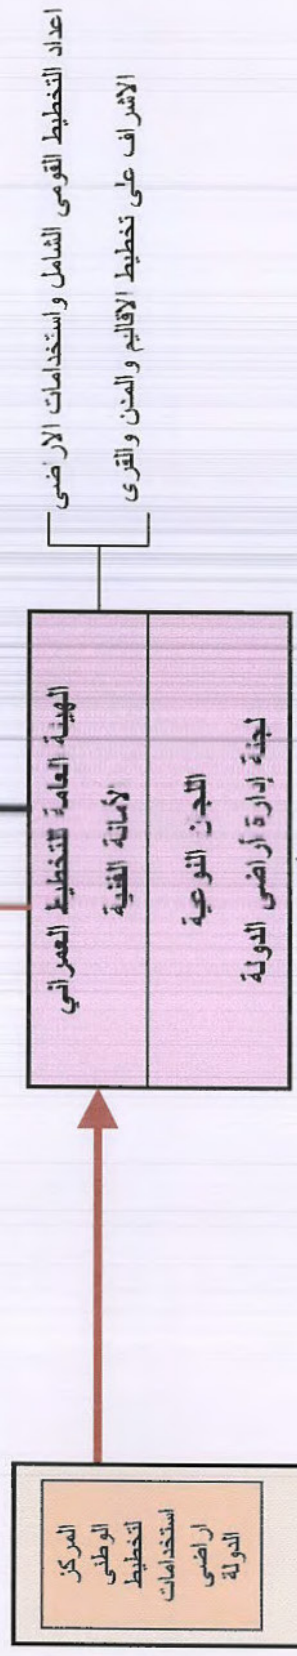 اعداد التخطيط القومى الشامل واستخدامات الاراضى
الاشراف على تخطيط الاقاليم والمدن والقرى
الهيئة العامة للتخطيط العمراني
الأمانة الفنية
اللجان النوعية
لجنة إدارة أراضى الدولة
المركز
الوطنى
لتخطيط
استخدامات
اراضى
الدولة